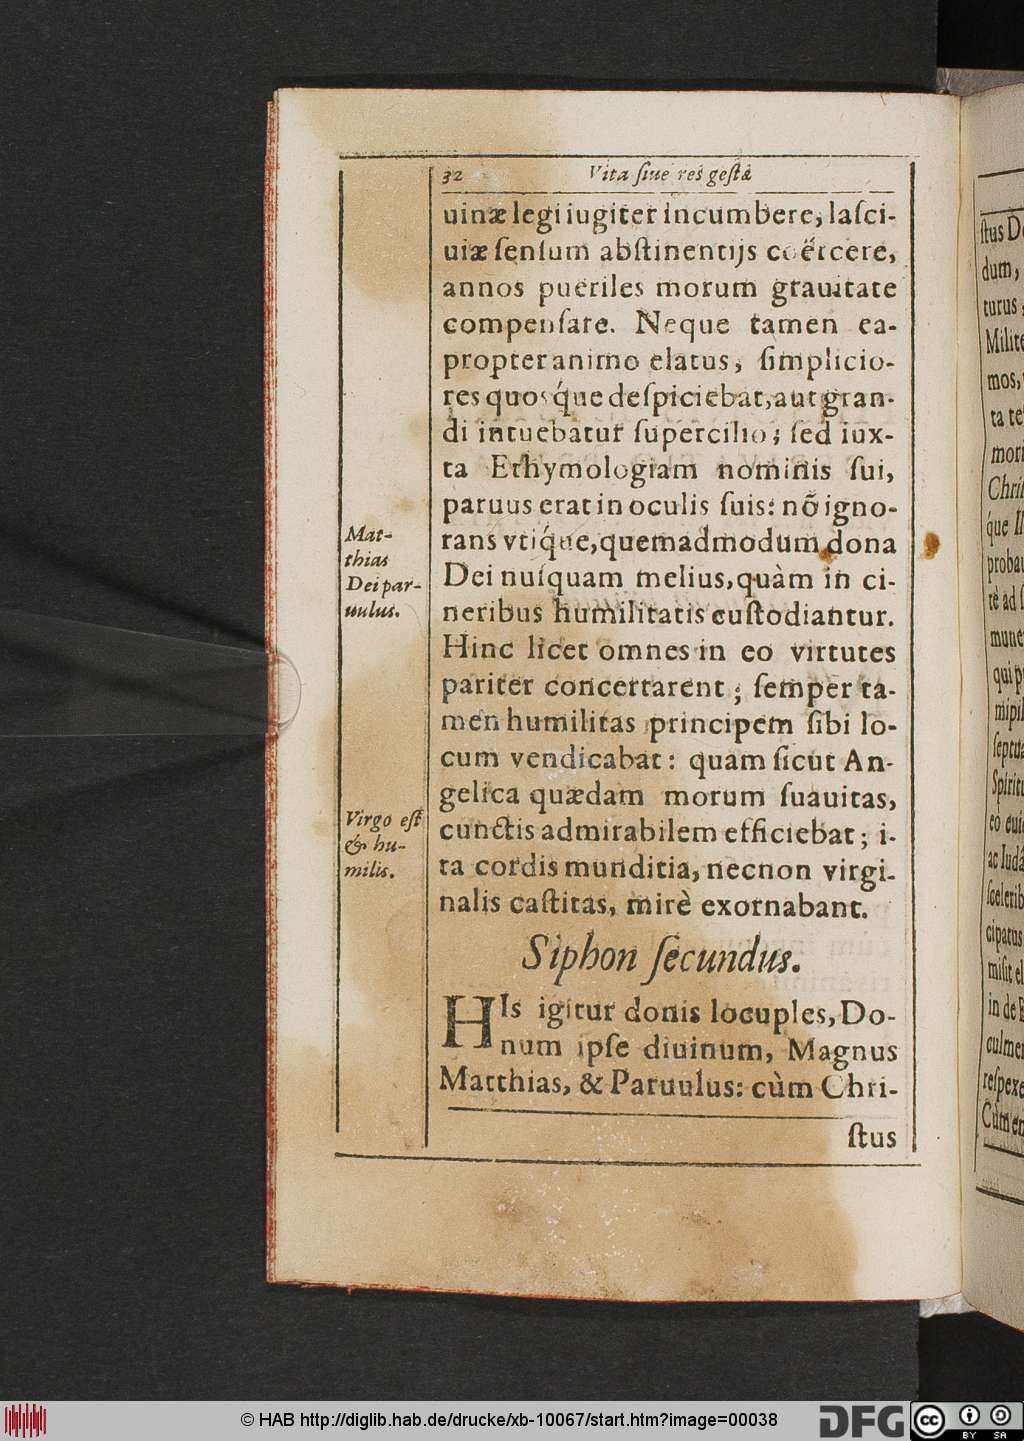 32 Vita ſiue res geſtæ
uinæ legi iugiter incumbere, laſci-
uiæ ſenſum abſtinentijs coërcere,
annos pueriles morum grauitate
compenſare. Neque tamen ea-
propter animo elatus, ſimplicio-
res quosq́ue deſpiciebat, aut gran-
di intuebatur ſupercilio; ſed iux-
ta Ethymologiam nominis ſui,
paruus erat in oculis ſuis: nõ igno-
rans vtiq́ue, quemadmodum dona
Dei nuſquam melius, quàm in ci-
neribus humilitatis cuſtodiantur.
Hinc licet omnes in eo virtutes
pariter concertarent; ſemper ta-
men humilitas principem ſibi lo-
cum vendicabat: quam ſicut An-
gelica quædam morum ſuauitas,
cunctis admirabilem efficiebat; i-
ta cordis munditia, necnon virgi-
nalis caſtitas, mirè exornabant.
Mat-
thias
Dei par-
uulus.
Virgo eſt
& hu-
milis.
Siphon ſecundus.
HIs igitur donis locuples, Do-
num ipſe diuinum, Magnus
Matthias, & Paruulus: cùm Chri-
ſtus
ſtus
dum,
turus
Milite
mos,
ta
mor
q́ue
proba
rè ad
mune
qui
mipil
ſeptua
Spiritu
eo
ac Iudæ
ſcelerib
cipatus
miſit el
in de
culmen
reſpexe
Cùm
© HAB http://diglib.hab.de/drucke/xb-10067/start.htm?image=00038
DFG
cc
BY SA